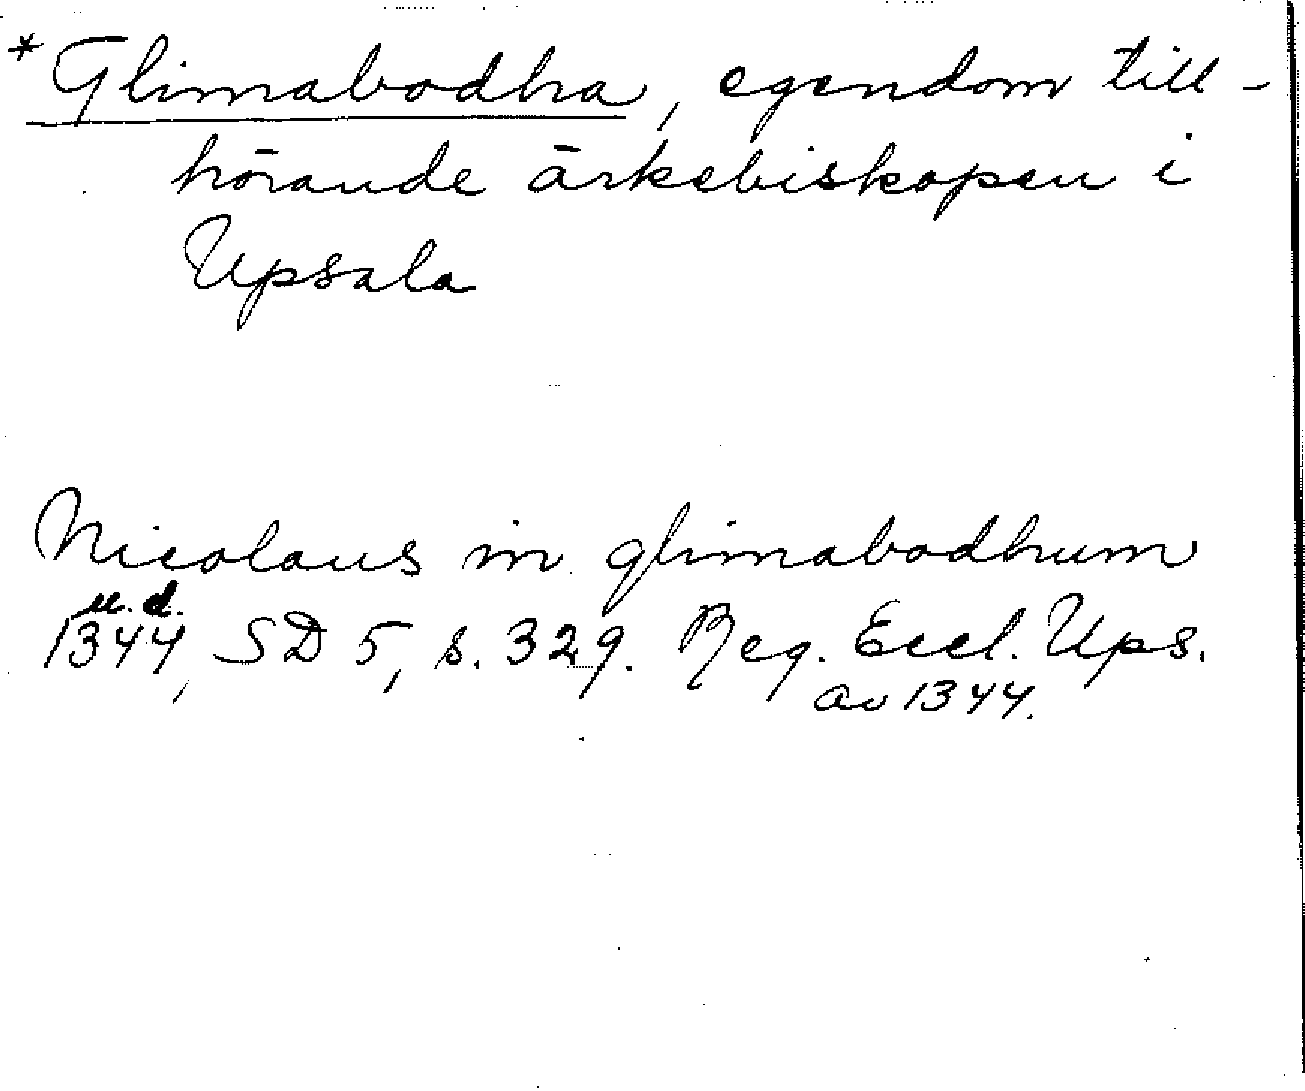 *Glimabodha, egendom till-
hörande ärkebiskopen i
Upsala
Nicolaus in glimabodhum
u.d.
1344, SD 5, s. 329. Reg. Eccl. Ups.
av 1344.